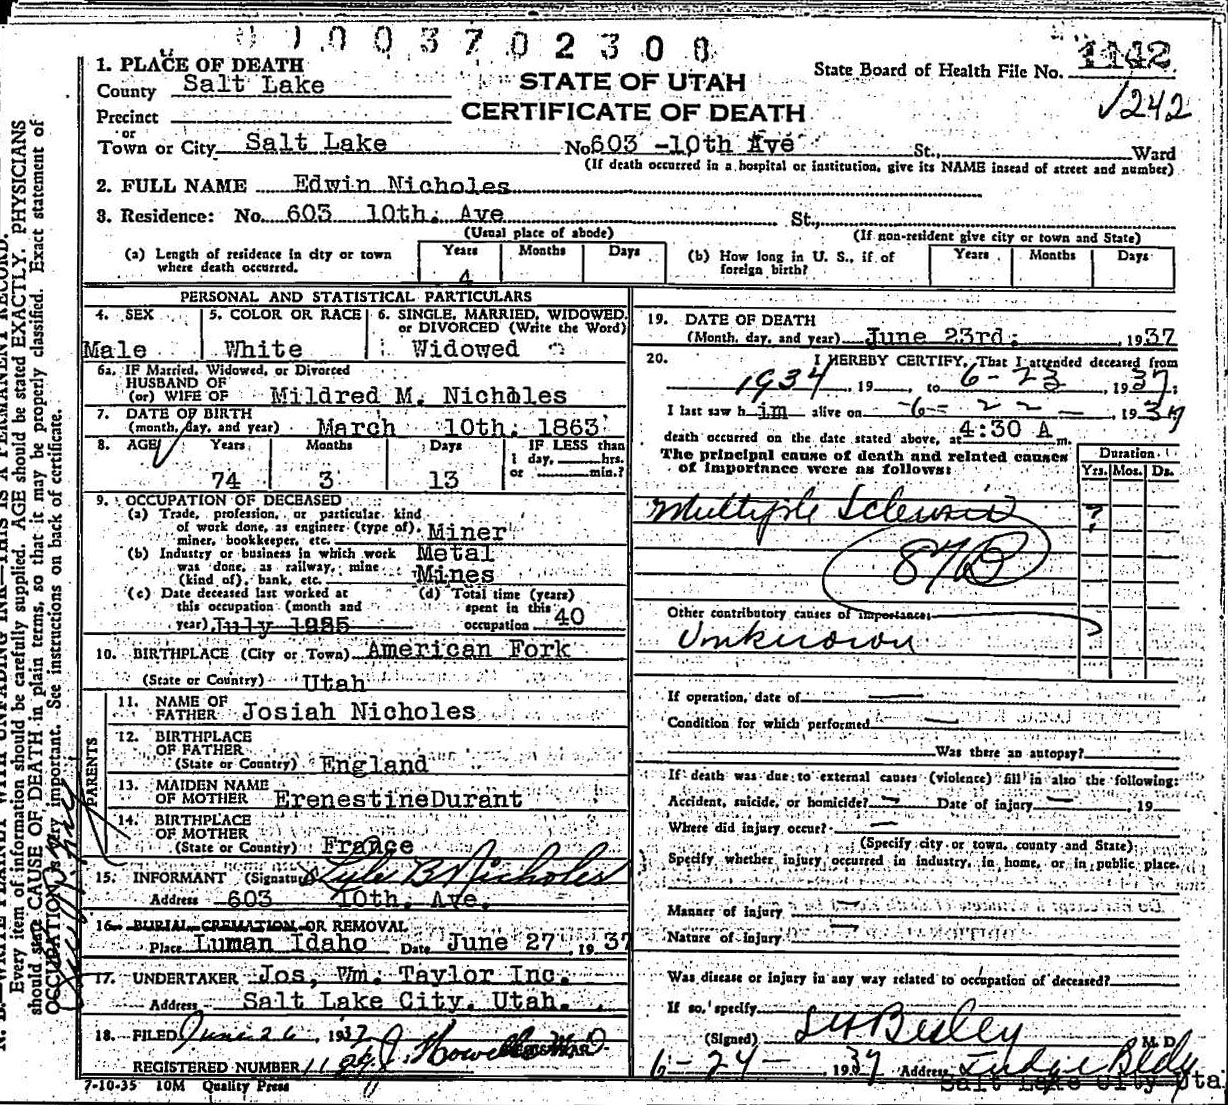 0100370230 0
1. PLACE OF DEATH
County Salt Lake
STATE OF UTAH
CERTIFICATE OF DEATH
State Board of Health File No. 1142
√242
Precinct
or
Town or City Salt Lake No 603 -10th Ave St., Ward
(If death occurred in a hospital or institution, give its NAME insead of street and number)
2. FULL NAME Edwin Nicholes
3. Residence: No. 603 10th. Ave St.,
(Usual place of abode) (If non-resident give city or town and State)
(a) Length of residence in city or town where death occurred. Years 4 Months Days
(b) How long in U. S., if of foreign birth? Years Months Days
PERSONAL AND STATISTICAL PARTICULARS
4. SEX Male
5. COLOR OR RACE White
6. SINGLE, MARRIED, WIDOWED, or DIVORCED (Write the Word) Widowed
6a. IF Married, Widowed, or Divorced
HUSBAND OF
(or) WIFE OF Mildred M. Nicholes
7. DATE OF BIRTH
(month, day, and year) March 10th. 1863
8. AGE Years 74 Months 3 Days 13 IF LESS than
1 day, hrs.
or min.?
9. OCCUPATION OF DECEASED
(a) Trade, profession, or particular kind
of work done, as engineer (type of),
miner, bookkeeper, etc. Miner
(b) Industry or business in which work
was done, as railway, mine
(kind of), bank, etc. Metal Mines
(c) Date deceased last worked at
this occupation (month and
year) July 1925
(d) Total time (years)
spent in this
occupation 40
10. BIRTHPLACE (City or Town) American Fork
(State or Country) Utah
PARENTS
11. NAME OF
FATHER Josiah Nicholes
12. BIRTHPLACE
OF FATHER
(State or Country) England
13. MAIDEN NAME
OF MOTHER ErenestineDurant
14. BIRTHPLACE
OF MOTHER
(State or Country) France
15. INFORMANT (Signature) Lyle B Nicholes
Address 603 10th. Ave.
16. BURIAL CREMATION OR REMOVAL
Place Luman Idaho Date June 27 1937
17. UNDERTAKER Jos, Wm. Taylor Inc.
Address Salt Lake City. Utah.
18. FILED June 26 1937
REGISTERED NUMBER 1129
7-10-35 10M Quality Press
19. DATE OF DEATH
(Month, day, and year) June 23rd. , 1937
20. I HEREBY CERTIFY, That I attended deceased from
1934, 19 , to 6-23 1937:
I last saw him alive on -6- 22 - , 1937
death occurred on the date stated above, at 4:30 A m.
The principal cause of death and related causes
of importance were as follows:
Duration
Yrs. Mos. Ds.
Multiple Sclerosis ?
87B
Other contributory causes of importance:
Unknown
If operation, date of
Condition for which performed
Was there an autopsy?
If death was due to external causes (violence) fill in also the following:
Accident, suicide, or homicide? Date of injury , 19
Where did injury occur?
(Specify city or town, county and State)
Specify whether injury occurred in industry, in home, or in public place.
Manner of injury
Nature of injury
Was disease or injury in any way related to occupation of deceased?
If so, specify
(Signed) M. D.
6-24- 1937 Address Judge Bldg
Salt Lake City Uta
Every item of information should be carefully supplied. AGE should be stated EXACTLY. PHYSICIANS
should state CAUSE OF DEATH in plain terms, so that it may be properly classified. Exact statement of
OCCUPATION is very important. See instructions on back of certificate.